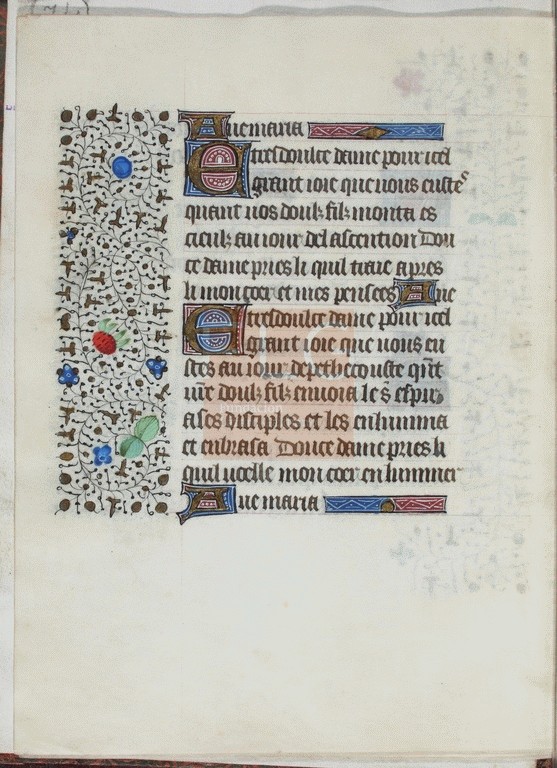 Aue maria
E tresdoulce dame pour icel
grant ioie que uous eustes
quant uos doulz filz monta es
cieulz au iour del ascention Dou
ce dame pries li quil traie apres
li mon coer et mes pensees Aue
E tresdoulce dame pour icel
grant ioie que uous eu
stes au iour depethecouste qnt
ure doulz filz enuoia le s espir
a ses disciples et les enlumina
et enbrasa Douce dame pries li
quil uoelle mon coer enluminer
Aue maria